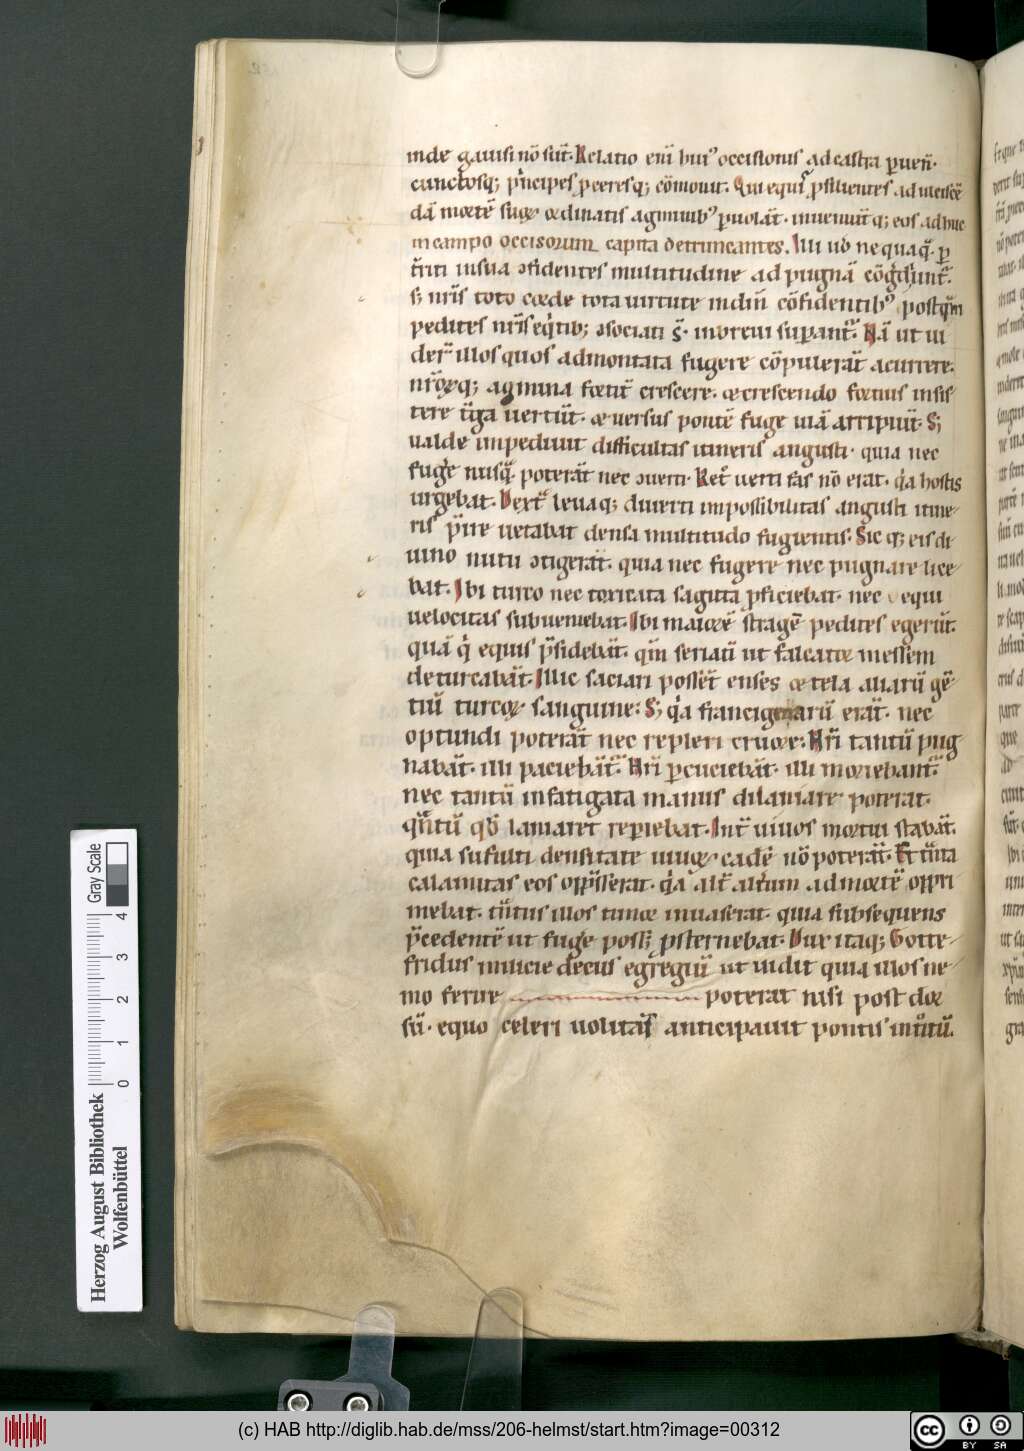 inde gauisi nō sūt. Relatio eni huiꝰ occisionis ad castra ꝑuen̄.
cunctosq; pncipes ꝓceresq; cōmouit. Qui equis ꝓsilientes ad incisē
dā mortē sugꝫ ordinatis agminibꝰ ꝑuolāt. inueniūtq; eos adhuc
in campo occisorum capita detruncantes. Illi uō nequaq̄. ꝑ
t̄riti in sua ɔfidentes multitudine ad pugnā
s; nr̄is toto corde tota uirtute in dīn cōfidentibꝰ postq̄m
pedites nr̄is eqtib; ɔsociati s̄. mortui suꝑant᷑. Nā ut ui
der̄ illos quos ad montata fugere cōpulerāt acurrere.
nr̄oꝝq; agmina fortit̄ crescere. & crescendo fortius insis
tere t̄ga uertūt. & uersus pontē fuge uiā arripiūt. S;
ualde impediuit difficultas itineris angusti. quia nec
fugere nusq̄. poterāt nec ɔuerti. Ret̄ uerti fas nō erat. qa hostis
urgebat. Dext᷑ leuaq; diuerti impossibilitas angusti itine-
ris p̄ire uetabat densa multitudo fugientis. Sic q; eis di
uino nutu ɔtigerāt. quia nec fugere nec pugnare lice-
bat. Ibi turco nec toxicata sagitta ꝓficiebat. nec equi
uelocitas subueniebat. Ibi maiorē stragē pedites egerūt.
quā q equis p̄sidebāt. qm seriatī ut falcatore messem
deturcabāt. Illic saciari possēt enses & tela aliarū gē-
tiū turcoꝝ sanguine: S; qa francigenarū erāt. nec
optundi poterāt nec repleri cruore: Nri tantū pug
nabāt. illi paciebāt᷑. Nri ꝑcuciebāt. illi moriebant᷑.
nec tantū infatigata manus dilaniare poterat.
qntū qd laniaret reꝑiebat. Int̄ uiuos mortui stabāt.
quia sufulti densitate uiuoꝝ cadē nō poterāt. Et tnta
calamitas eos opp̄sserat. qa alt̄ altum ad mortē oppri
mebat. tntus illos timor inuaserat. quia subsequens
p̄cedentē ut fuge poss; ꝓsternebat. Dux itaq; Gotte-
fridus milicie decus egregiū ut uidit quia illos ne-
mo ferire poterat nisi post dor
sū. equo celeri uolitās anticipauit pontis intoitū.
Gray Scale
0 1 2 3 4
Herzog August Bibliothek
Wolfenbüttel
(c) HAB http://diglib.hab.de/mss/206-helmst/start.htm?image=00312
cc BY SA